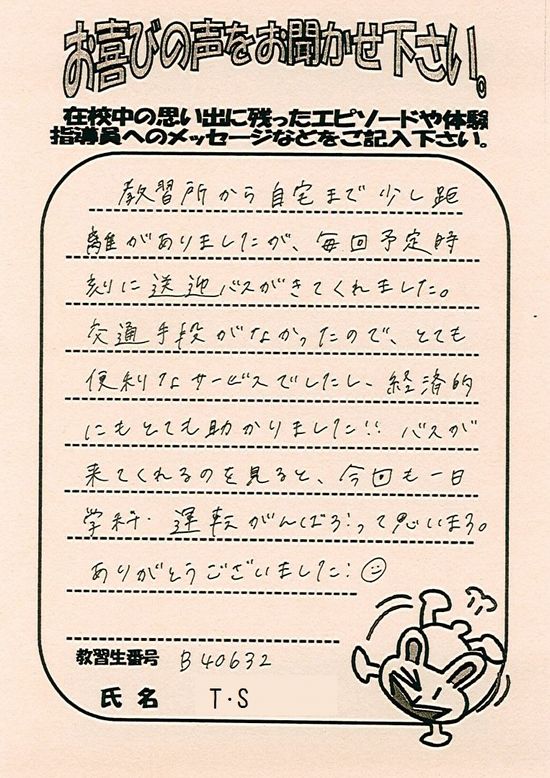 お喜びの声をお聞かせ下さい。
在校中の思い出に残ったエピソードや体験
指導員へのメッセージなどをご記入下さい。
教習所から自宅まで少し距
離がありましたが、毎回予定時
刻に送迎バスがきてくれました。
交通手段がなかったので、とても
便利なサービスでしたし、経済的
にもとても助かりました!! バスが
来てくれるのを見ると、今回も一日
学科・運転がんばろうって思います。
ありがとうございました! ☺
教習生番号 B40632
氏名 T・S